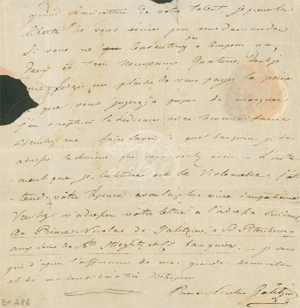 grand admirateur de votre talent, je prens la
liberté de vous écrire pour vous demander
si vous ne consentiriez pas à composer
deux ou trois nouveaux Quatuors, dont
me ferais un plaisir de vous payer la peine
que vous jugerez à propos de marquer
j'en accepterai la dédicace avec reconnaissance
Veuillez me faire savoir à quel banquier je dois
adresser la somme que vous voulez avoir. L'instrument
que je cultive est le Violoncelle. J'attends
votre réponse avec la plus vive impatience
Veuillez m'adresser votre lettre à l'adresse suivante
Au Prince Nicolas de Galitzin à St. Petersbourg
aux soins de Mrs Stieglitz & Co banquiers. Je vous
prie d'agréer l'assurance de ma grande admiration
et de ma considération distinguée
Prince Nicolas Galitzin
BH 286